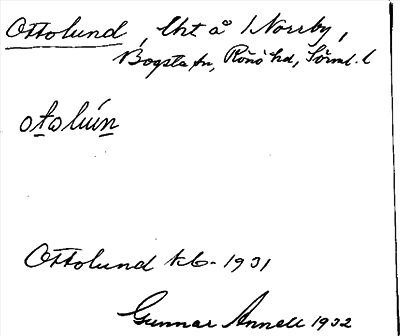 Ottolund, lht å 1 Norrby,
Bogsta sn, Rönö hd, Sörml. l
otolún
Ottolund kb- 1931
Gunnar Annell 1932